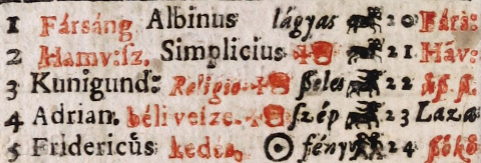 1 Fársáng Albinus lágyas 20 Fárs:
2 Hamv:sz. Simplicius 21 Háv:
3 Kunigund: Religio. szeles 22
4 Adrian. béli veisze. szép 23 Laza
5 Fridericus kedd, fény 24